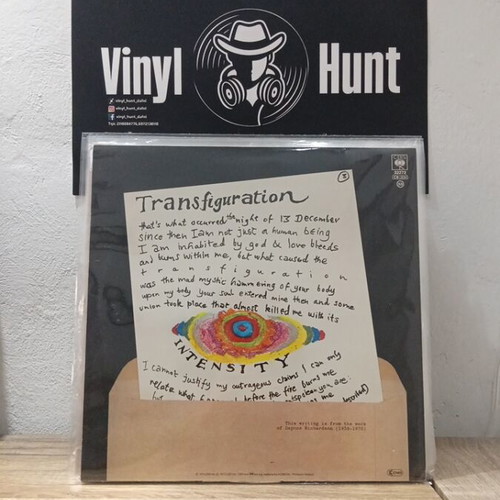 Vinyl Hunt
vinyl_hunt_dafni
vinyl_hunt_dafni
vinyl_hunt_dafni
3
CBS
Transfiguration
that's what occurred the night of 13 December
since then I am not just a human being
I am inhabited by god & love bleeds
and burns within me, but what caused the
transfiguration
was the mad mystic hammering of your body
upon my body your soul entered mine then and some
union took place that almost killed me with its
INTENSITY
I cannot justify my outrageous claims I can only
relate what before the fire burns me
This writing is from the work
of Dagmar Richardson